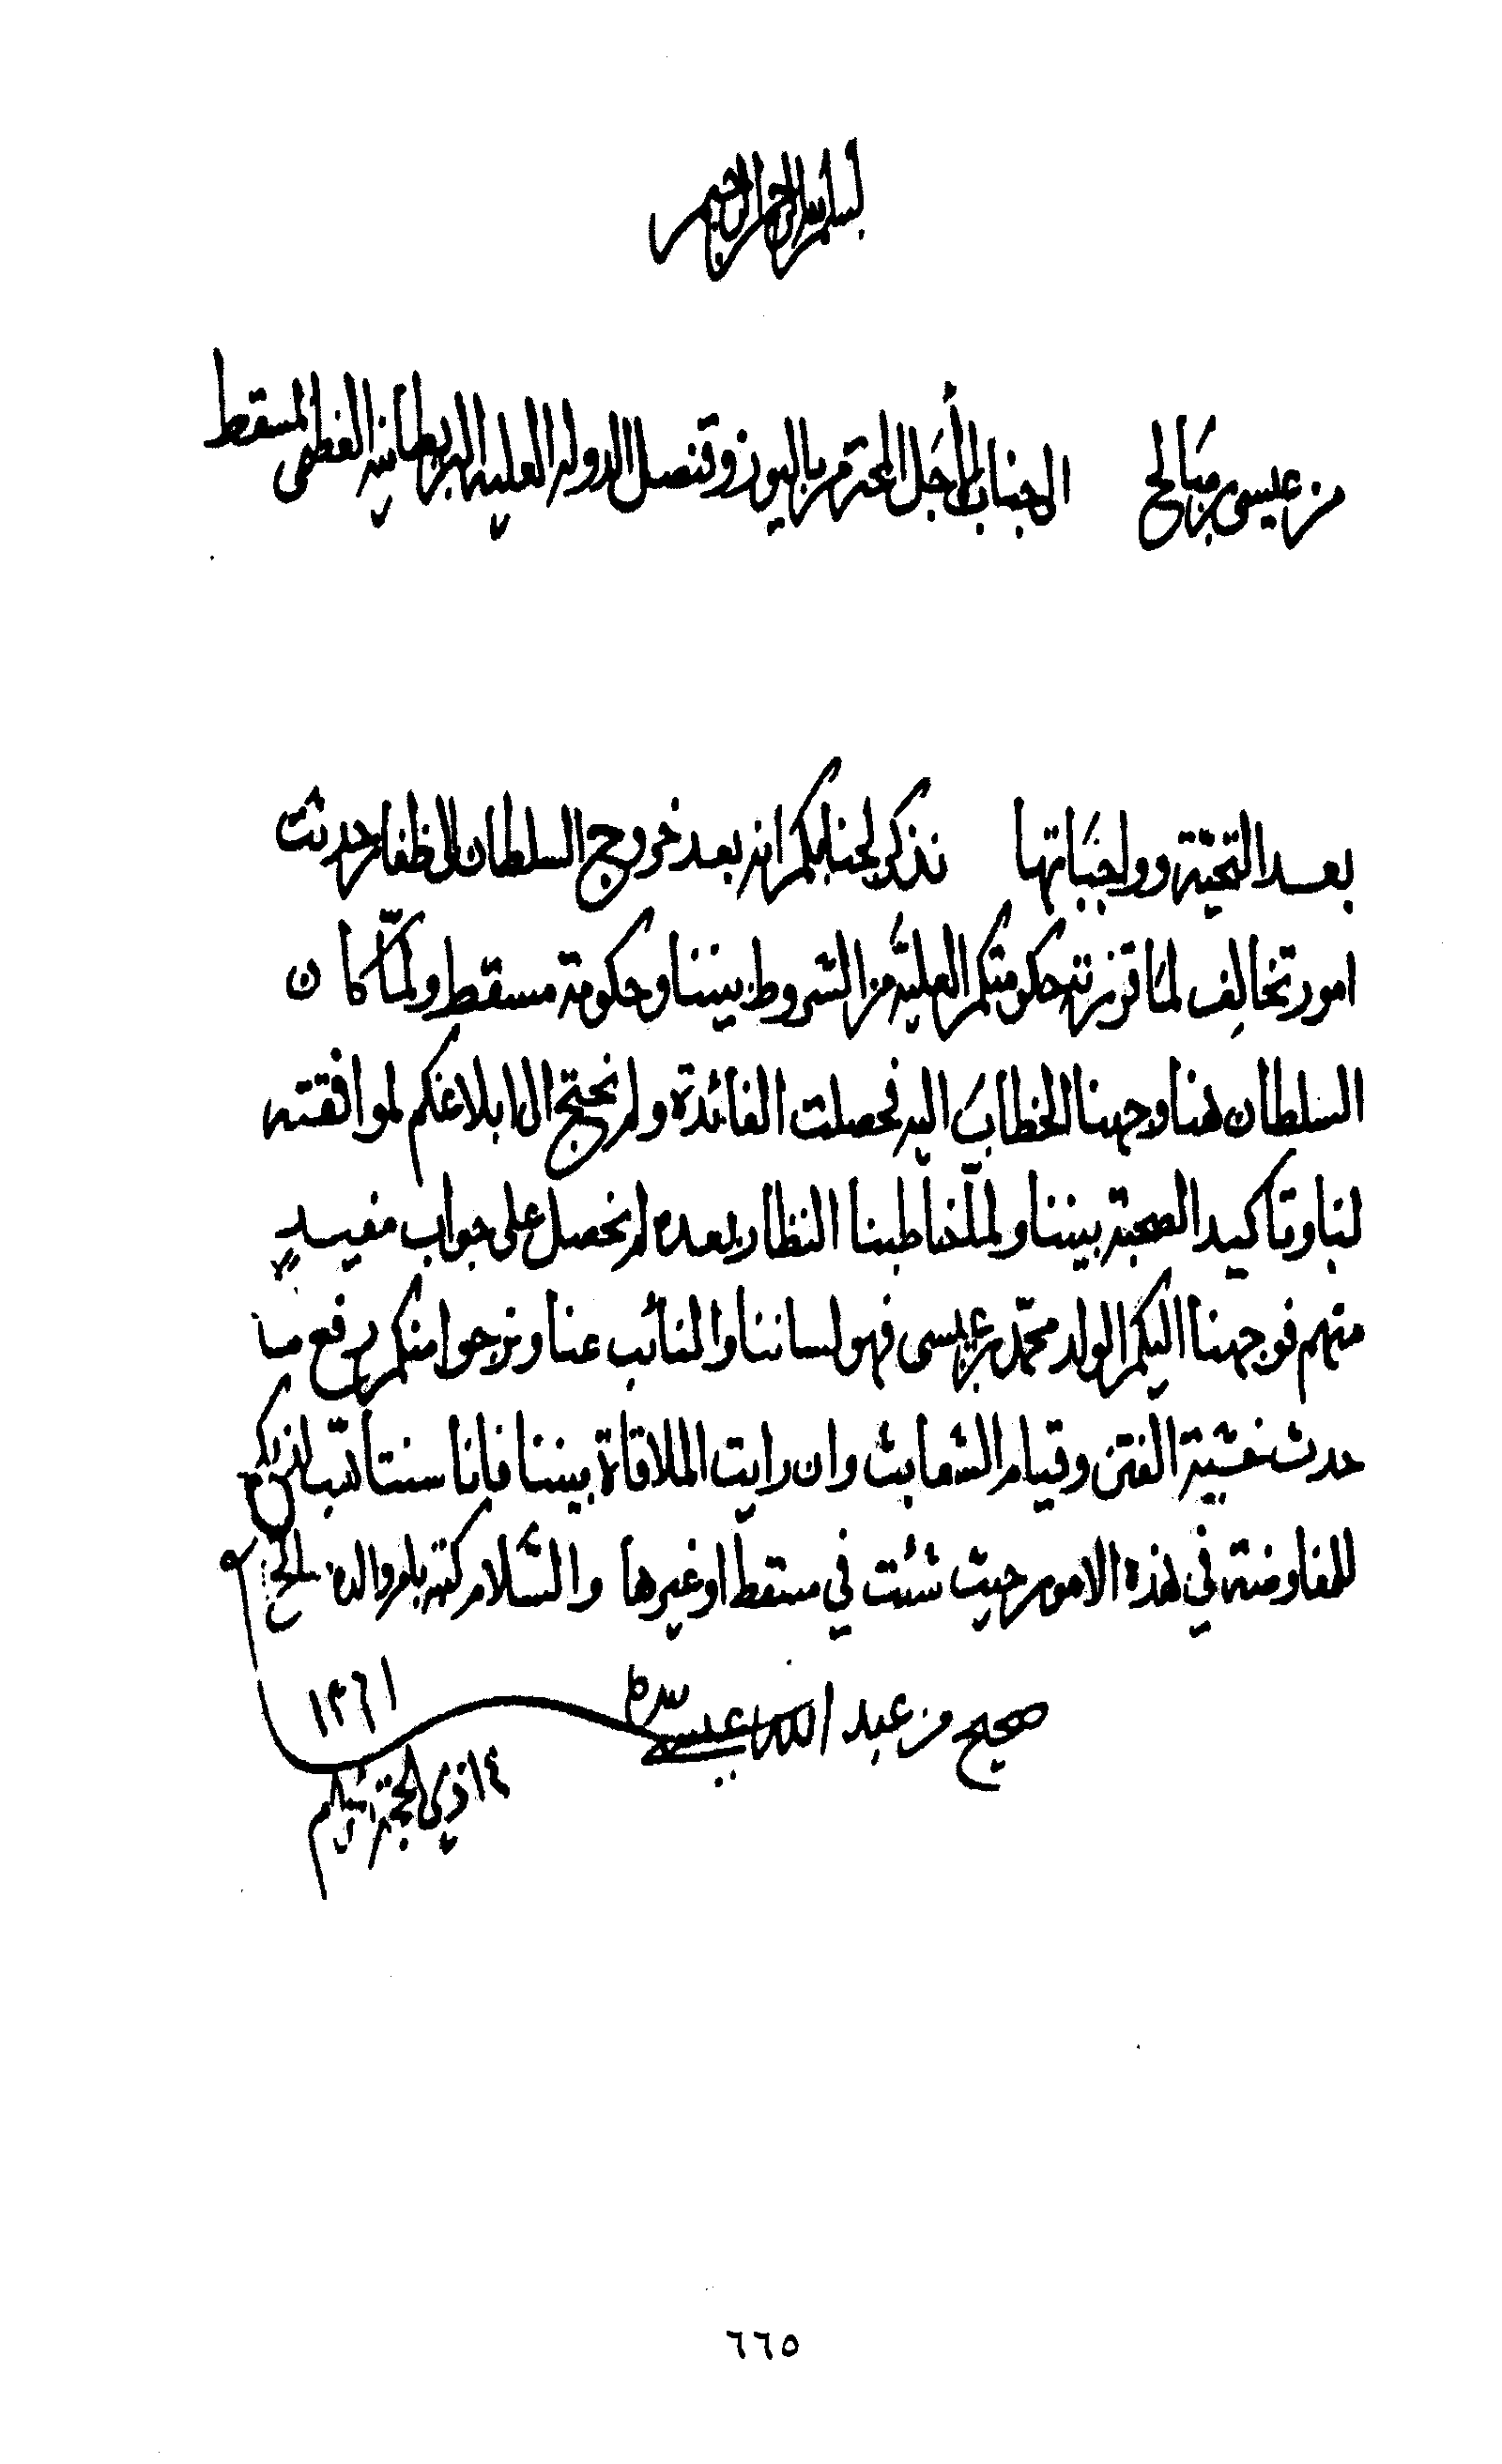 بسم الله الرحمن الرحيم
من عيسى بن صالح الى جناب الأجل المحترم باليوز وقنصل الدولة العلية البريطانية العظمى لمسقط
بعد التحية وواجباتها نذكر لجنابكم انه بعد خروج السلطان الى ظفار حدثت
امور تخالف لما قررته حكومتكم العلية من الشروط بيننا وحكومة مسقط ولمّا كان
السلطان هنا وجهنا الخطاب اليه فحصلت الفائدة ولم نحتج الى ابلاغكم لموافقته
لنا وتاكيد الصحبة بيننا ولمّا خاطبنا النظار بعده لم نحصل على جواب مفيد
منهم فوجهنا اليكم الولد محمّد بن عيسى فهو لساننا والنائب عنا ونرجوا منكم رفع ما
حدث خشية الفتن وقيام الشعابث وان رايت الملاقاة بيننا فانا سنتاهب لذلك
للمفاوضة في هذه الامور حيث شئت في مسقط او غيرها والسّلام كتبه بامر والده صالح
صحيح من عبد الله عيسى بيده
١٤ ذي الحجة
٦٦٥